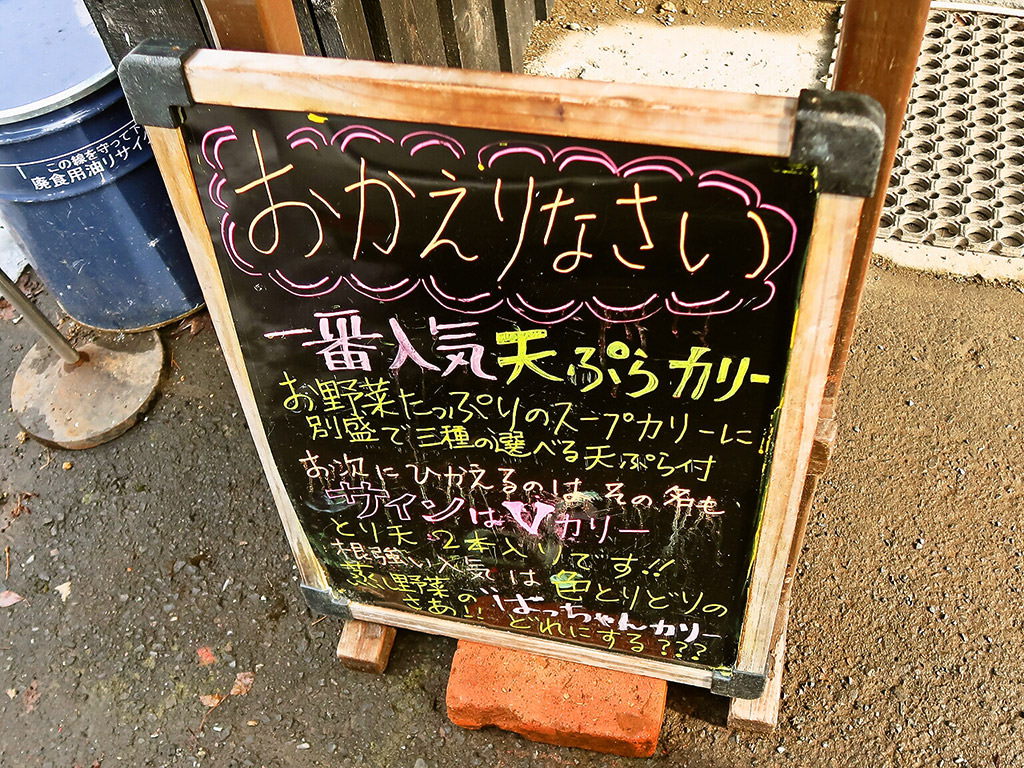 この線を守って下
廃食用油リサイ
おかえりなさい
一番人気天ぷらカリー
お野菜たっぷりのスープカリーに
別盛で三種の選べる天ぷら付
お次にひかえるのは その名も、
サインはVカリー
とり天 2本入りです!!
根強い人気は色とりどりの
蒸し野菜の"ばっちゃんカリー
さあ!! どれにする???